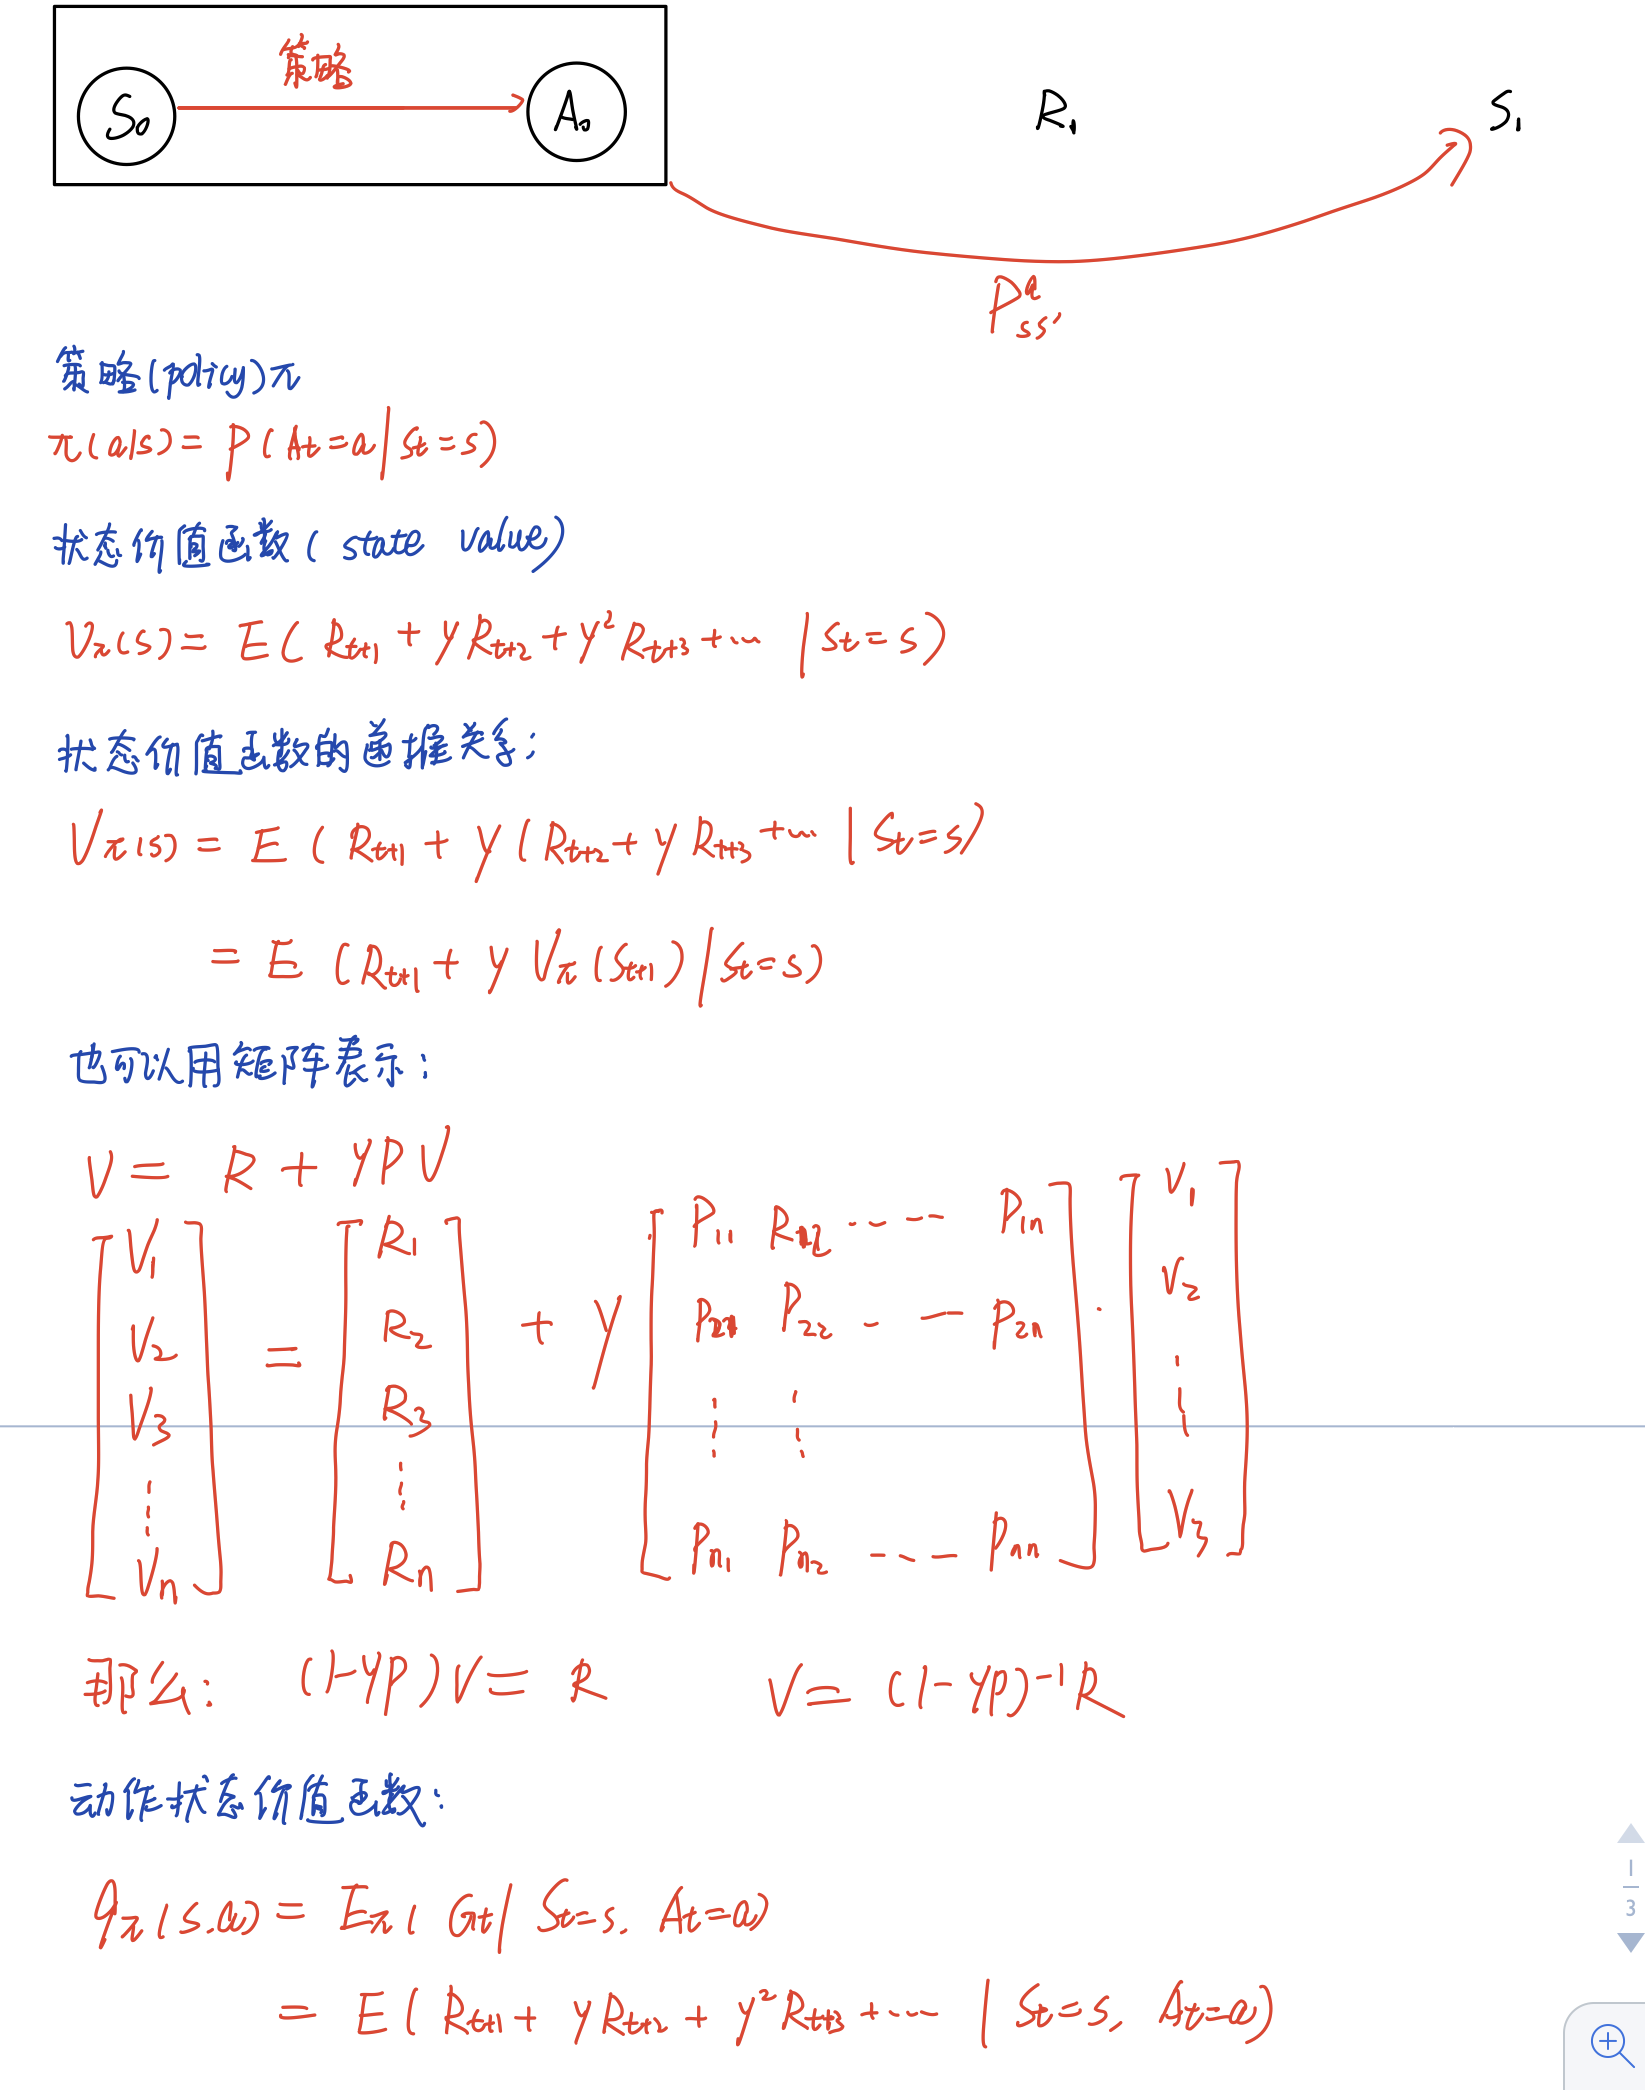 策略
S₀ A₀ R₁ S₁
P^a_ss'
策略(policy)π
π(a|s) = P(At=a|St=s)
状态价值函数(state value)
Vπ(s) = E(Rt+1 + γRt+2 + γ²Rt+3 + ⋯ |St=s)
状态价值函数的递推关系:
Vπ(s) = E(Rt+1 + γ(Rt+2 + γRt+3 + ⋯ |St=s)
= E(Rt+1 + γVπ(St+1)|St=s)
也可以用矩阵表示:
V = R + γPV
[V1 V2 V3 ⋮ Vn] = [R1 R2 R3 ⋮ Rn] + γ [P11 R12 ⋯ ⋯ P1n
P21 P22 ⋯ ⋯ P2n
⋮ ⋮
Pn1 Pn2 ⋯ ⋯ Pnn] · [V1 V2 ⋮ V3]
那么: (1-γP)V = R V = (1-γP)⁻¹R
动作状态价值函数:
qπ(s.a) = Eπ(Gt|St=s. At=a)
= E(Rt+1 + γRt+2 + γ²Rt+3 + ⋯ |St=s, At=a)
1
3